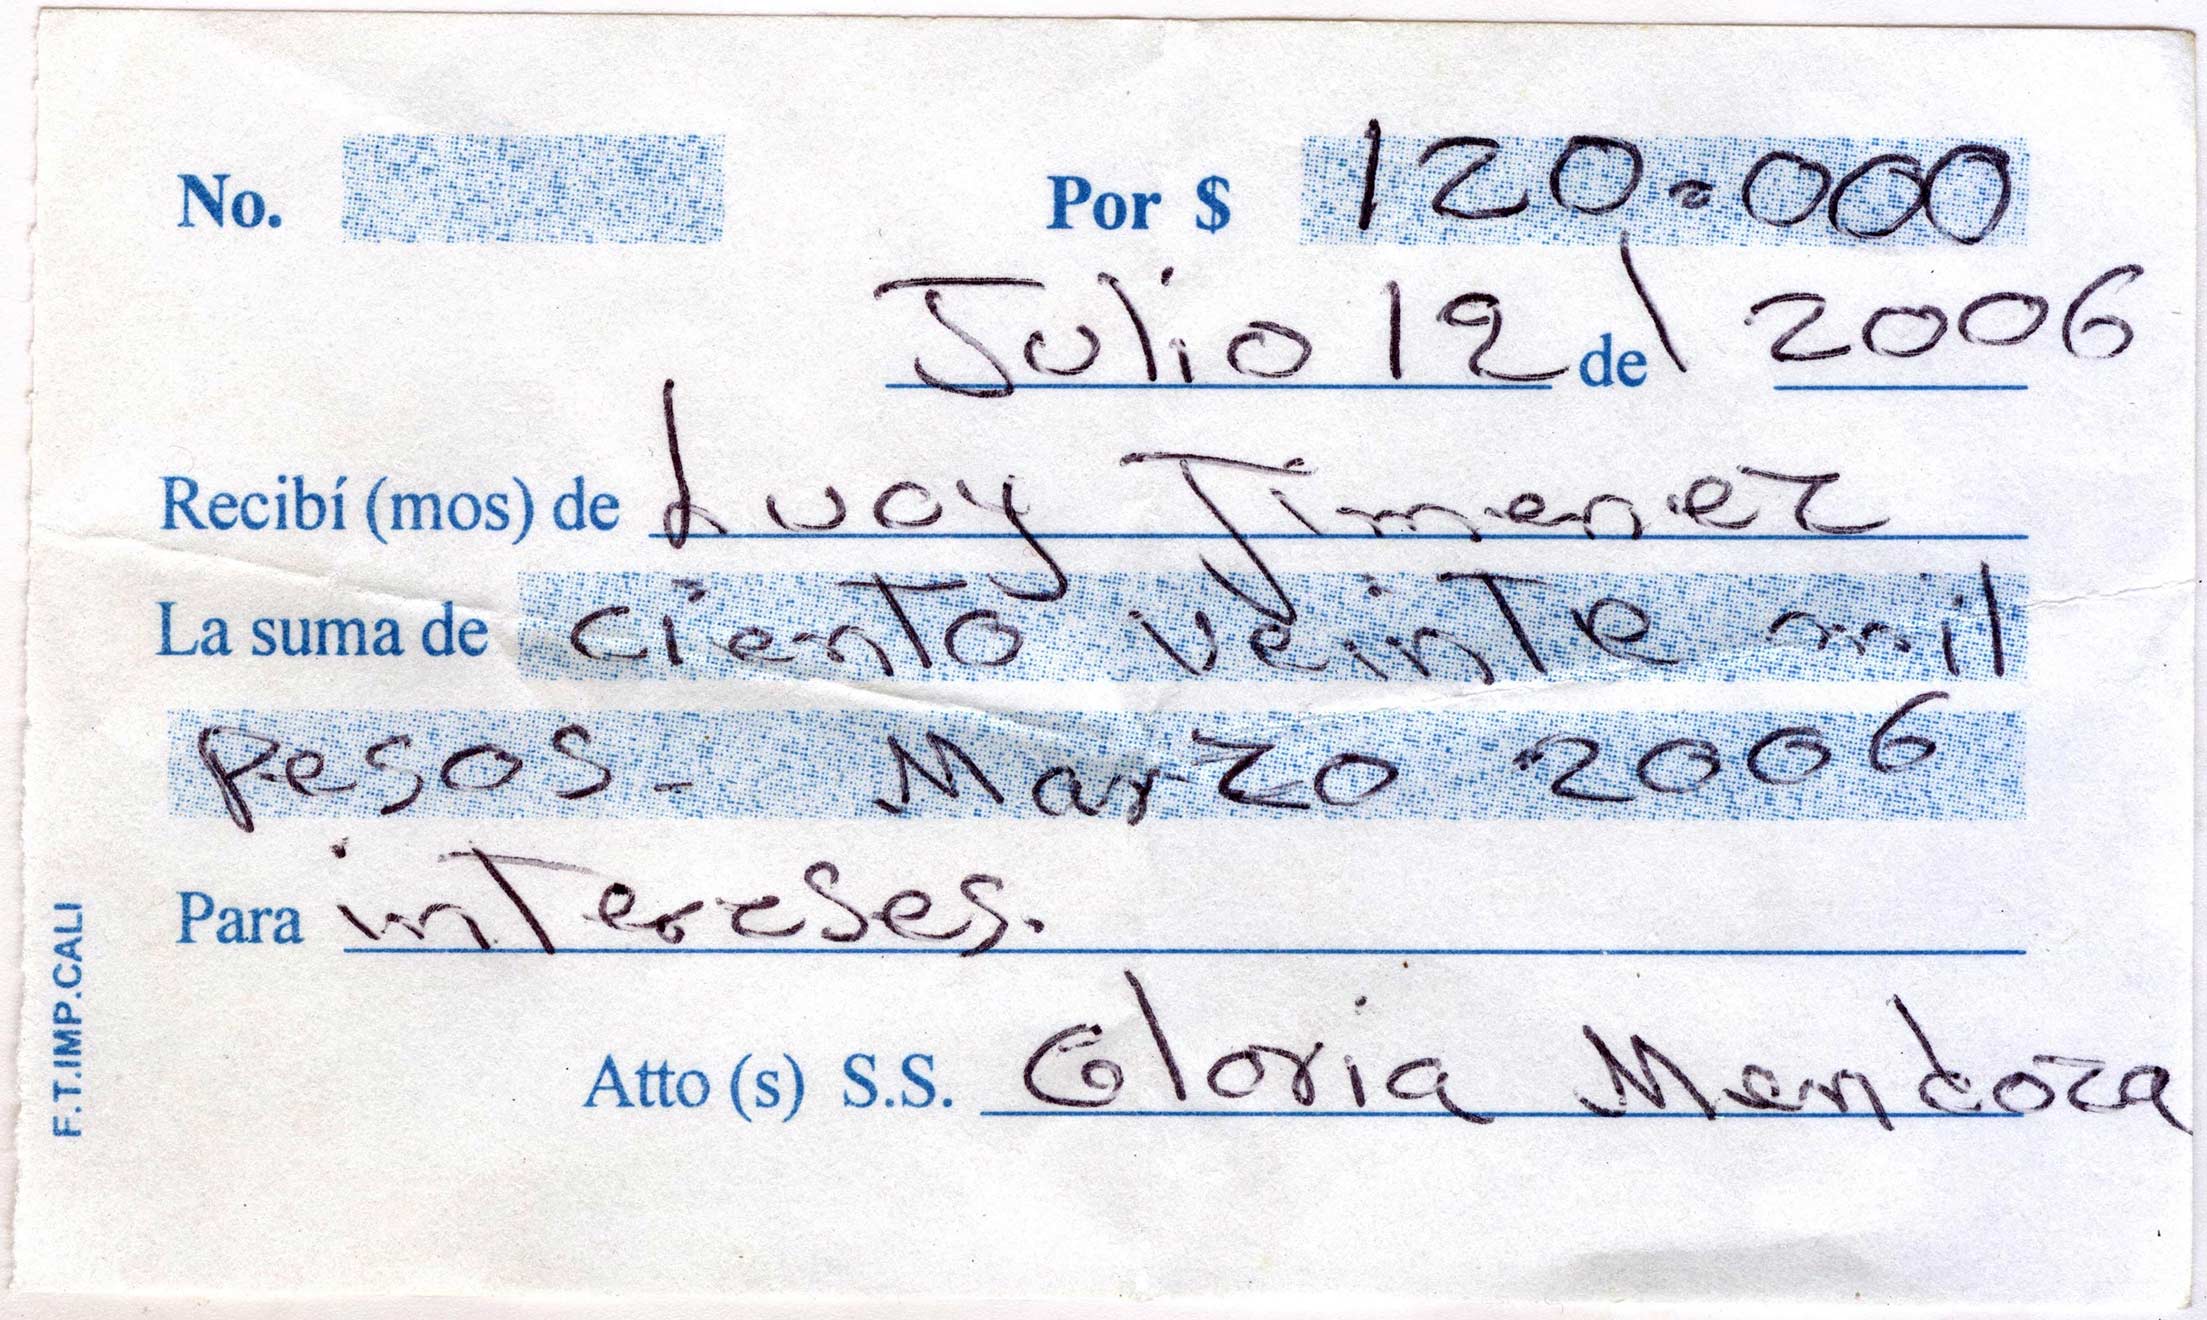 No. Por $ 120.000
Julio 12 de / 2006
Recibí (mos) de Lucy Jimenez
La suma de ciento veinte mil
pesos - Marzo 2006
Para intereses.
Atto (s) S.S. Gloria Mendoza
F.T.IMP.CALI